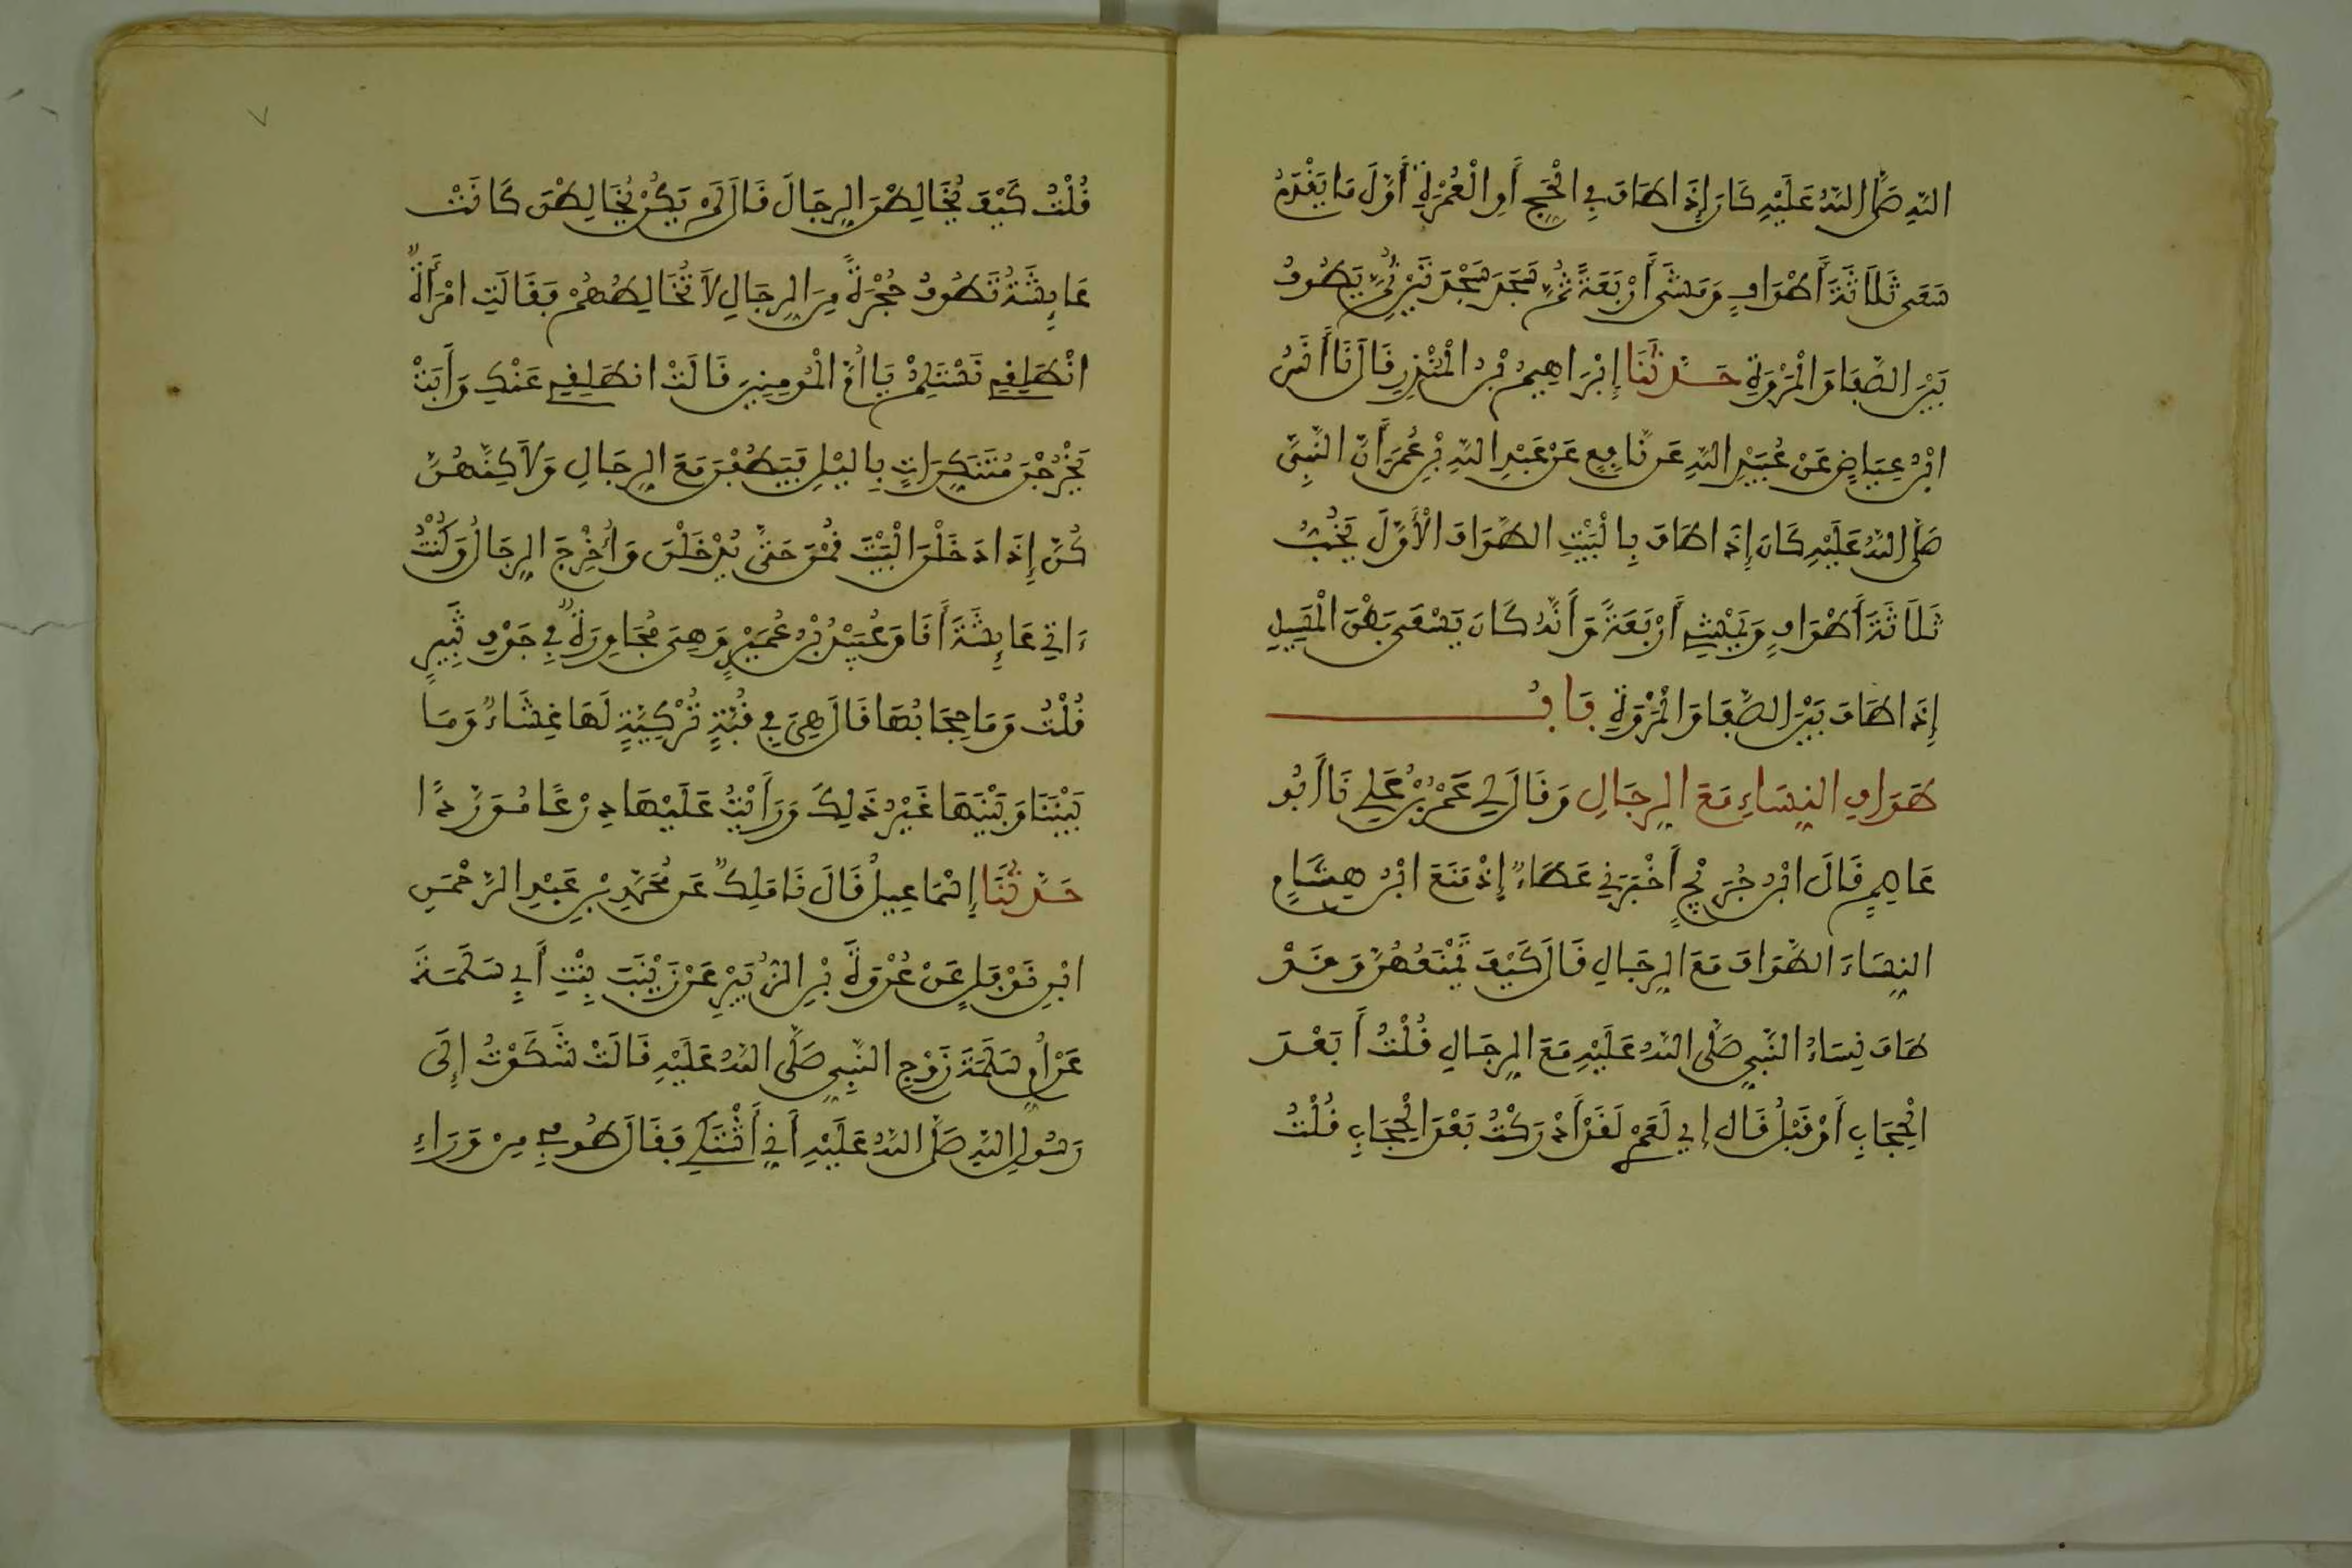 اللَّهِ صَلَّى اللَّهُ عَلَيْهِ كَانَ إِذَا طَافَ فِي الْحَجِّ أَوِ الْعُمْرَةِ أَوَّلَ مَا يَقْدَمُ
سَعَى ثَلَاثَةَ أَطْوَافٍ وَمَشَى أَرْبَعَةً ثُمَّ سَجَدَ سَجْدَتَيْنِ ثُمَّ يَطُوفُ
بَيْنَ الصَّفَا وَالْمَرْوَةِ حَدَّثَنَا إِبْرَاهِيمُ بْنُ الْمُنْذِرِ قَالَ نَا أَنَسُ
ابْنُ عِيَاضٍ عَنْ عُبَيْدِ اللَّهِ عَن نَّافِعٍ عَنْ عَبْدِ اللَّهِ بْنِ عُمَرَ أَنَّ النَّبِيَّ
صَلَّى اللَّهُ عَلَيْهِ كَانَ إِذَا طَافَ بِالْبَيْتِ الطَّوَافَ الْأَوَّلَ يَخُبُّ
ثَلَاثَةَ أَطْوَافٍ وَيَمْشِي أَرْبَعَةً وَأَنَّهُ كَانَ يَسْعَى بَطْنَ الْمَسِيلِ
إِذَا طَافَ بَيْنَ الصَّفَا وَالْمَرْوَةِ بَابُ
طَوَافِ النِّسَاءِ مَعَ الرِّجَالِ وَقَالَ لِي عَمْرُو بْنُ عَلِيٍّ نَا أَبُو
عَاصِمٍ قَالَ ابْنُ جُرَيْجٍ أَخْبَرَنِي عَطَاءٌ إِذْ مَنَعَ ابْنُ هِشَامٍ
النِّسَاءَ الطَّوَافَ مَعَ الرِّجَالِ قَالَ كَيْفَ تَمْنَعُهُنَّ وَقَدْ
طَافَ نِسَاءُ النَّبِيِّ صَلَّى اللَّهُ عَلَيْهِ مَعَ الرِّجَالِ قُلْتُ أَبَعْدَ
الْحِجَابِ أَوْ قَبْلُ قَالَ إِي لَعَمْرِي لَقَدْ أَدْرَكْتُ بَعْدَ الْحِجَابِ قُلْتُ
قُلْتُ كَيْفَ يُخَالِطْنَ الرِّجَالَ قَالَ لَمْ يَكُنْ يُخَالِطْنَ كَانَتْ
عَائِشَةُ تَطُوفُ حُجْرَةً مِنَ الرِّجَالِ لَا تُخَالِطُهُمْ فَقَالَتِ امْرَأَةٌ
انْطَلِقِي نَسْتَلِمْ يَا أُمَّ الْمُومِنِينَ قَالَتْ انطَلِقِي عَنْكِ وَأَبَتْ
يَخْرُجْنَ مُتَنَكِّرَاتٍ بِاليْلِ فَيَطُفْنَ مَعَ الرِّجَالِ وَلَاكِنَّهُنَّ
كُنَّ إِذَا دَخَلْنَ الْبَيْتَ قُمْنَ حَتَّى يَدْخُلْنَ وَأُخْرِجَ الرِّجَالُ وَكُنْتُ
ءَاتِي عَائِشَةَ أَنَا وَعُبَيْدُ بْنُ عُمَيْرٍ وَهِيَ مُجَاوِرَةٌ فِي جَوْفِ ثَبِيرٍ
قُلْتُ وَمَا حِجَابُهَا قَالَ هِيَ فِي قُبَّةٍ تُرْكِيَّةٍ لَهَا غِشَاءٌ وَمَا
بَيْنَنَا وَبَيْنَهَا غَيْرُ ذَلِكَ وَرَأَيْتُ عَلَيْهَا دِرْعًا مُوَرَّدًا
حَدَّثَنَا إِسْمَاعِيلُ قَالَ نَا مَلِكٌ عَن مُحَمَّدِ بْنِ عَبْدِ الرَّحْمَنِ
ابْنِ نَوْفَلٍ عَنْ عُرْوَةَ بْنِ الزُّبَيْرِ عَنْ زَيْنَبَ بِنْتِ أَبِي سَلَمَةَ
عَنْ أُمِّ سَلَمَةَ زَوْجِ النَّبِيِّ صَلَّى اللَّهُ عَلَيْهِ قَالَتْ شَكَوْتُ إِلَى
رَسُولِ اللَّهِ صَلَّى اللَّهُ عَلَيْهِ أَنِّي أَشْتَكِي فَقَالَ طُوفِي مِنْ وَرَاءِ